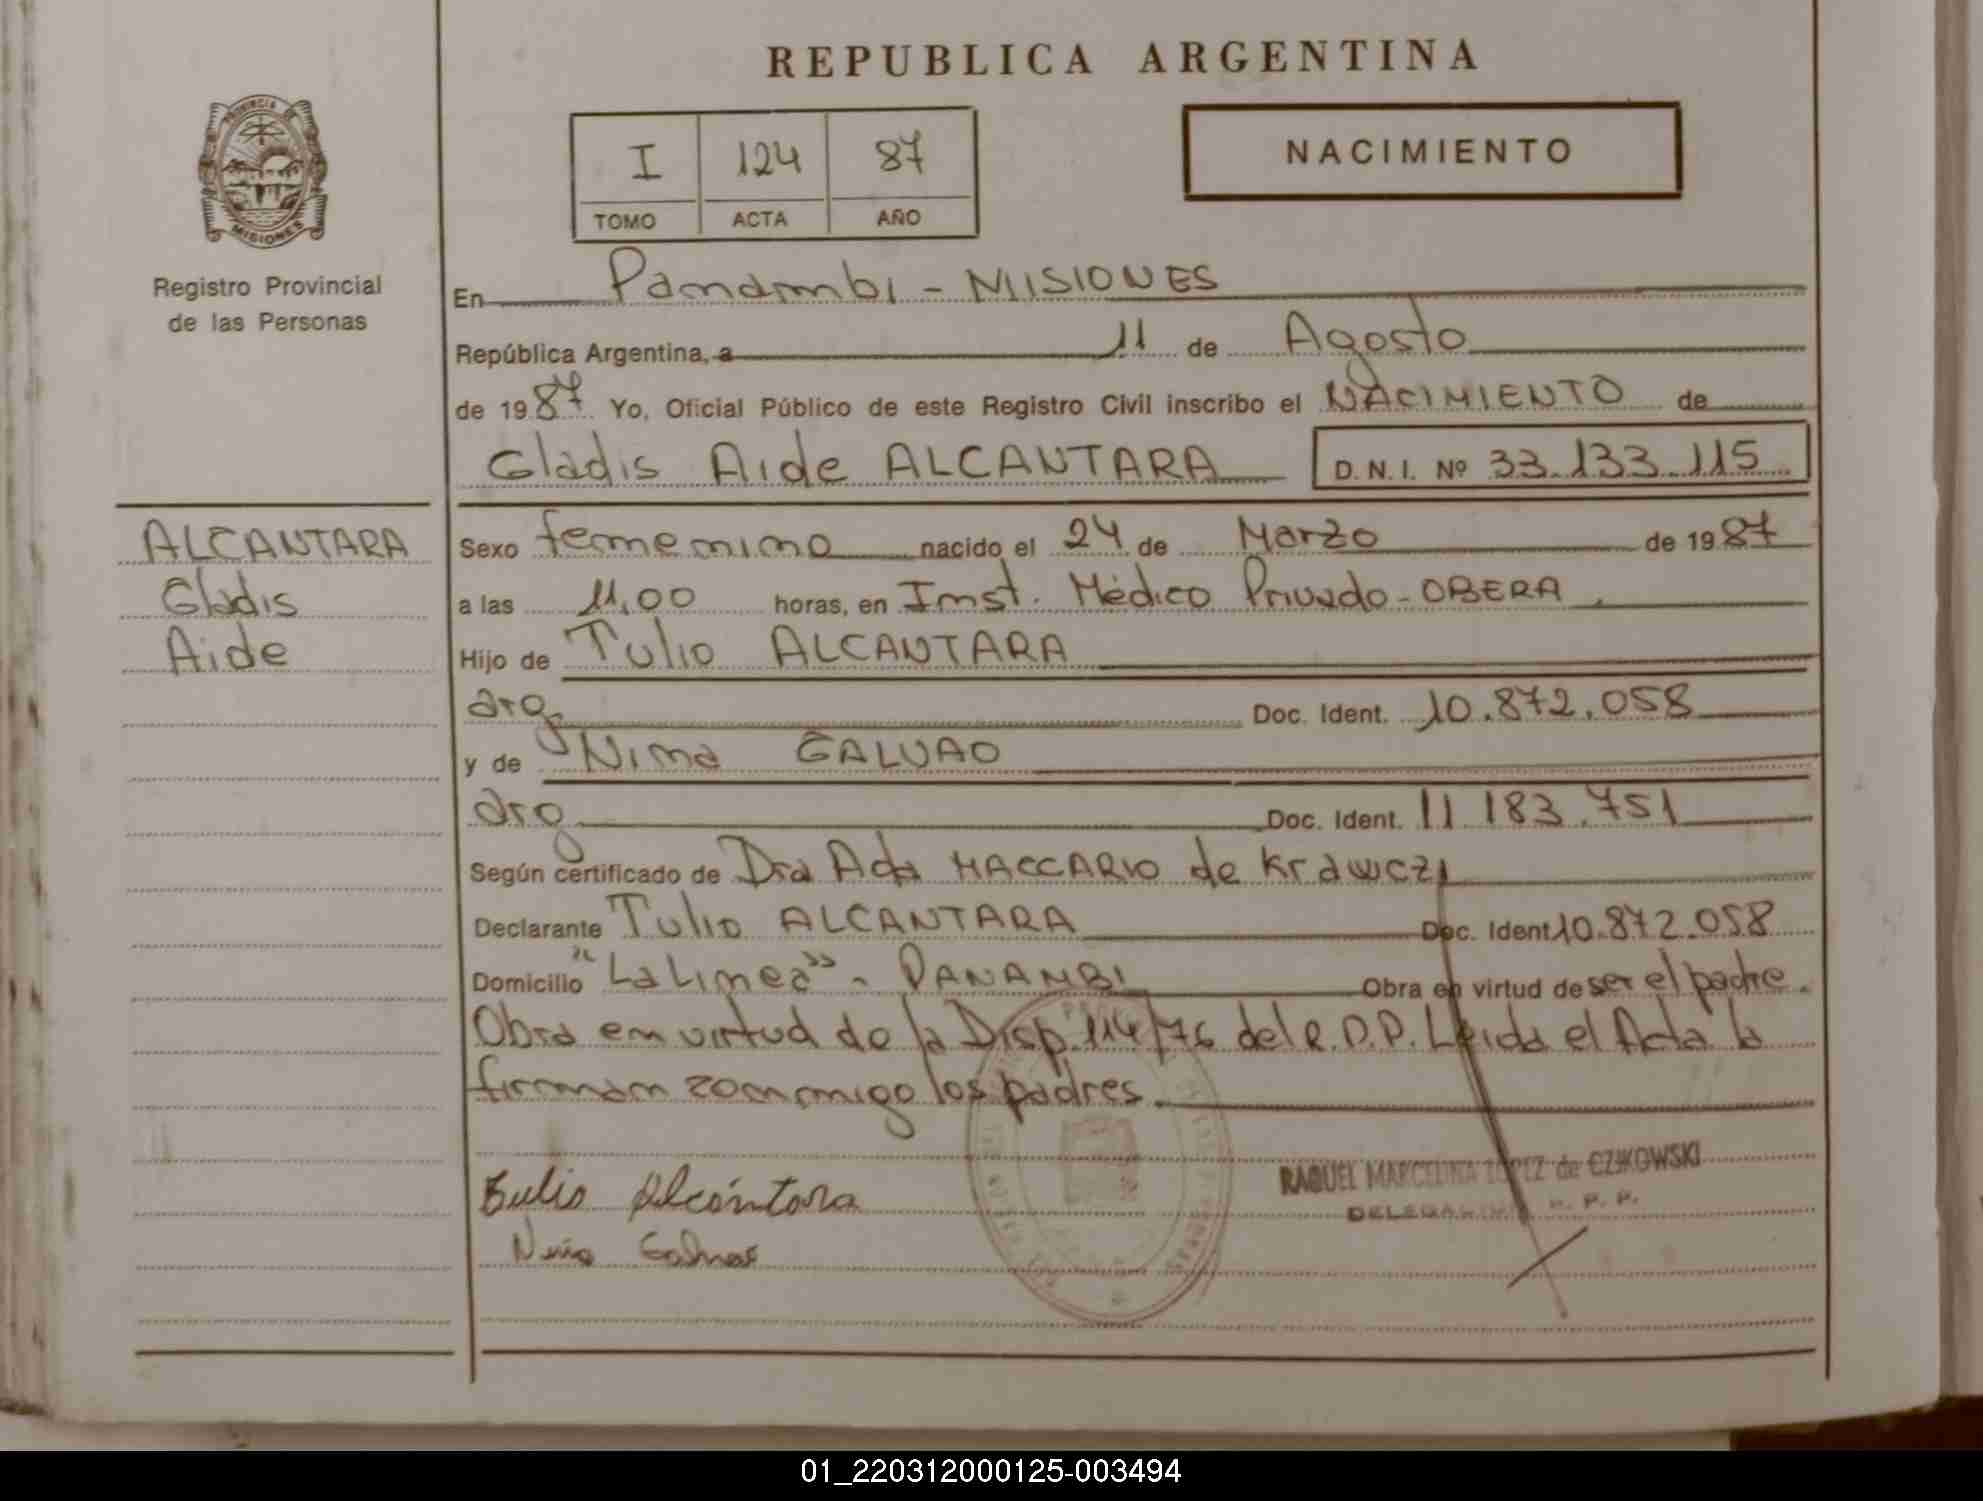 REPUBLICA ARGENTINA
PROVINCIA
MISIONES
Registro Provincial
de las Personas
I 124 87
TOMO ACTA AÑO
NACIMIENTO
En Panambi - MISIONES
República Argentina, a 11 de Agosto
de 1987 Yo, Oficial Público de este Registro Civil inscribo el NACIMIENTO de
Gladis Aide ALCANTARA D.N.I. Nº 33.133.115
ALCANTARA
Gladis
Aide
Sexo femenino nacido el 24 de Marzo de 1987
a las 11,00 horas, en Inst. Médico Privado - OBERA.
Hijo de Tulio ALCANTARA
arg Doc. Ident. 10.872.058
y de Nina GALVAO
arg Doc. Ident. 11.183.751
Según certificado de Dra Ada MACCARIO de Krawczi
Declarante Tulio ALCANTARA Doc. Ident 10.872.058
Domicilio "La Linea" - PANAMBI Obra en virtud de ser el padre.
Obra en virtud de la Disp. 114/76 del R.P.P. Leida el Acta la
firman conmigo los padres.
RAQUEL MARCELINA LOPEZ de CZIKOWSKI
R. P. P.
Tulio Alcántara
Nina Galvao
01_220312000125-003494